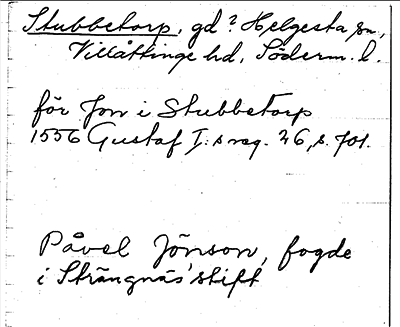 Stubbetorp, gd? Helgesta sn,
Villåttinge hd, Söderm. l.
för Jon i Stubbetorp
1556 Gustaf I:s reg. 26, s. 701.
Påvel Jönson, fogde
i Strängnäs' stift